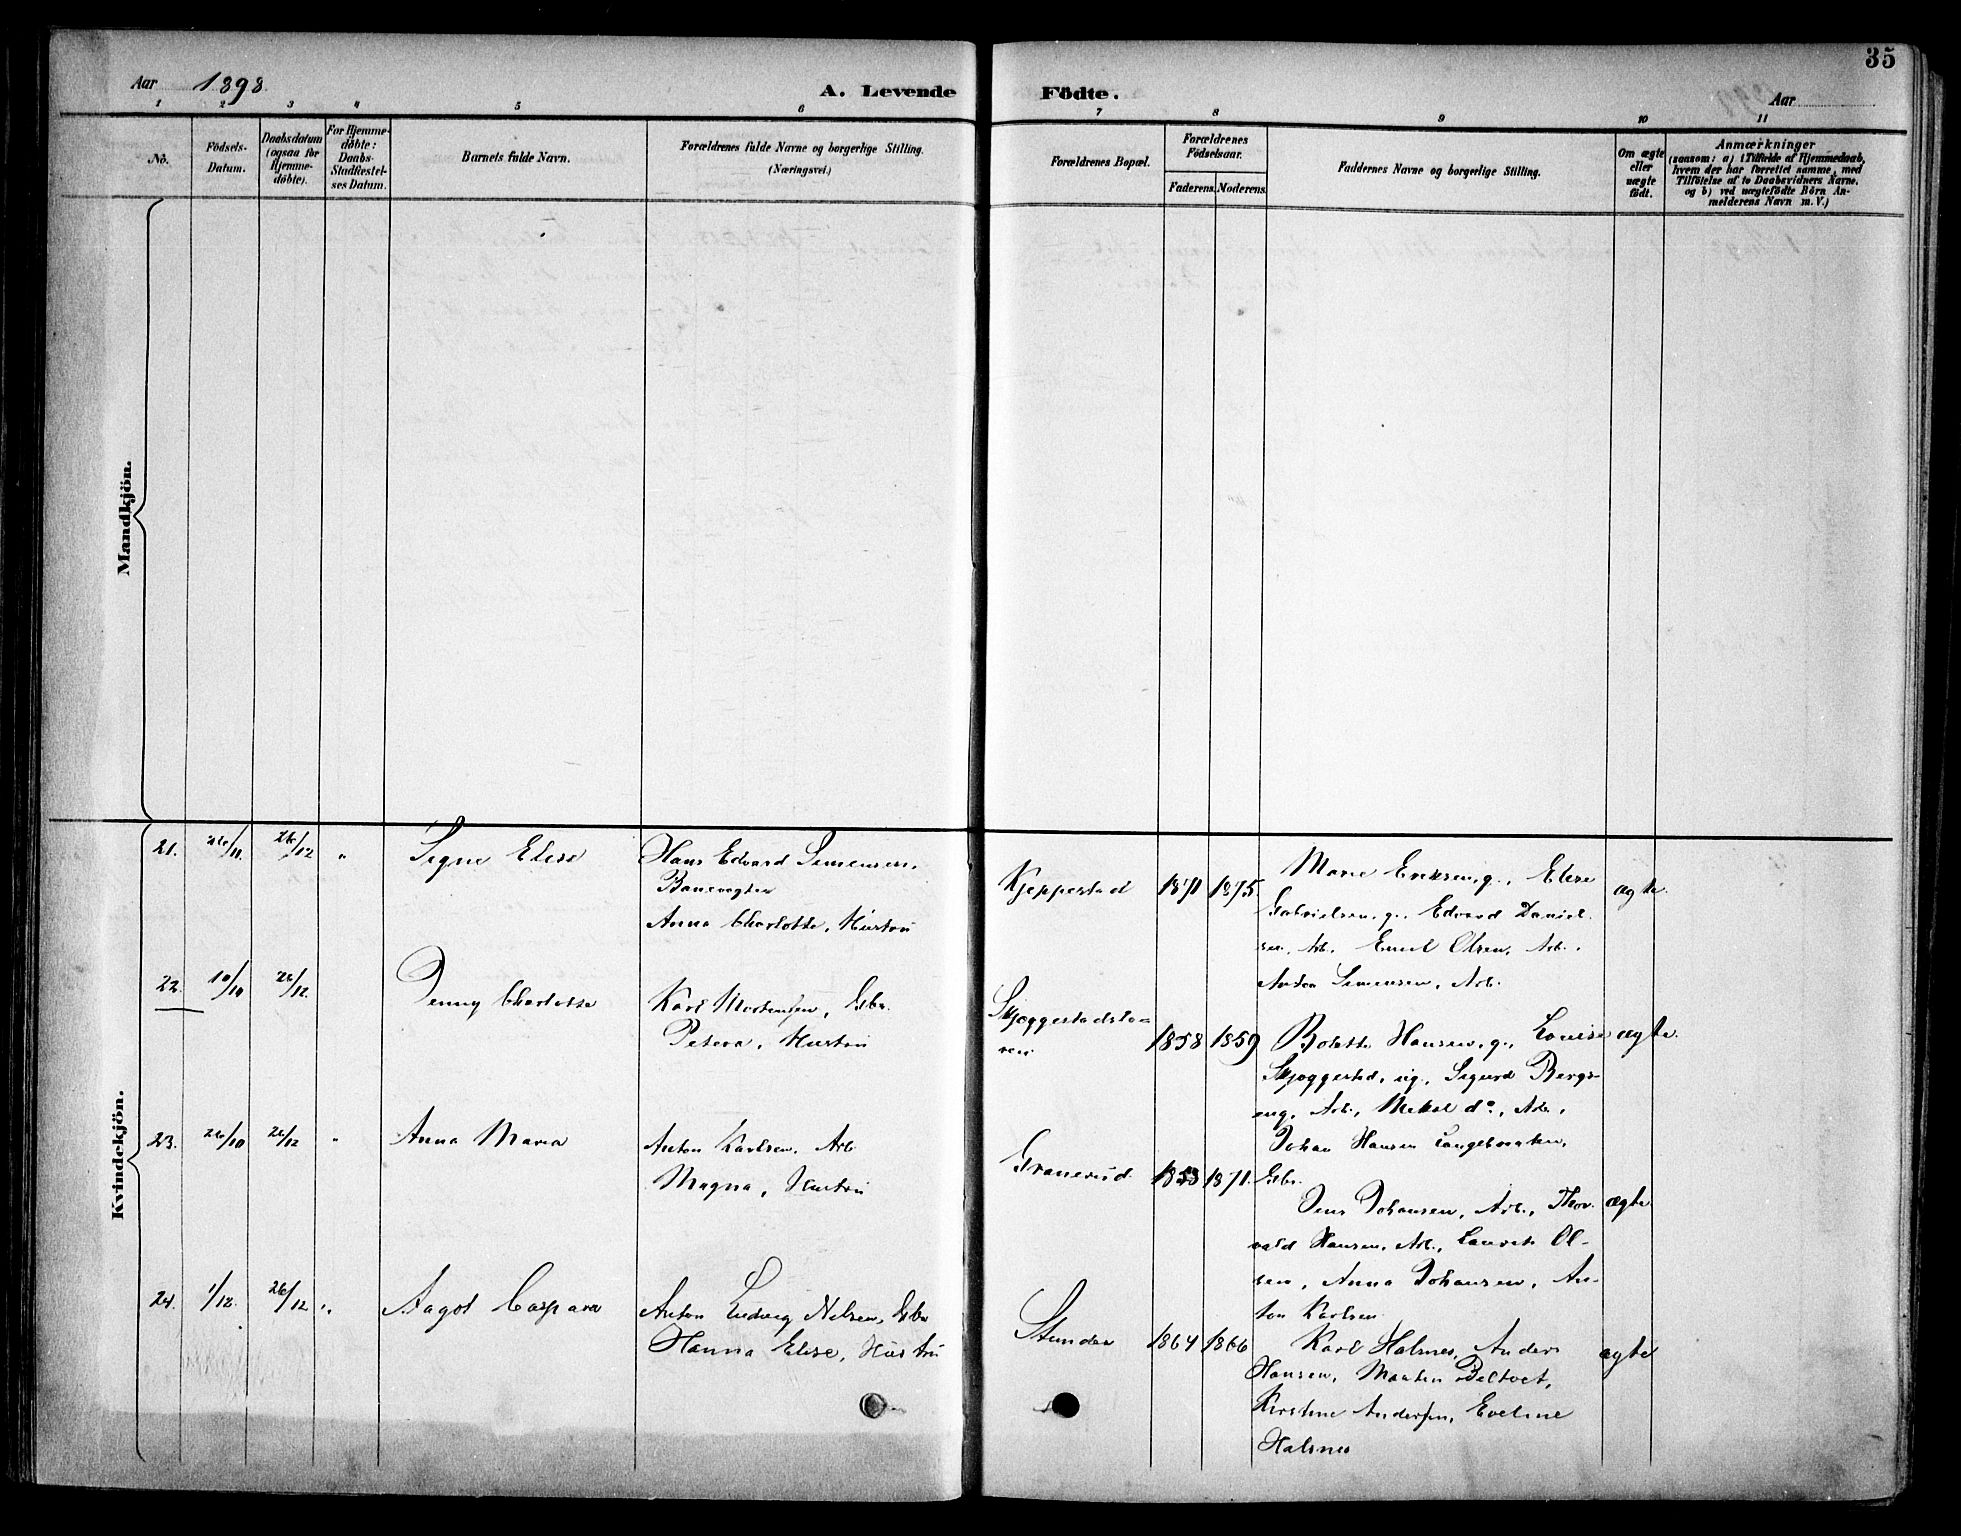 35
Aar 1898.
A. Levende Födte.
Aar
1 2 3 4 5 6 7 8 9 10 11
No.
Födsels-
Datum.
Daabsdatum
(ogsaa for
Hjemme-
døbte).
For Hjemme-
døbte:
Daabs-
Stadfæstel-
ses Datum.
Barnets fulde Navn.
Forældrenes fulde Navne og borgerlige Stilling.
(Næringsvei.)
Forældrenes Bopæl.
Forældrenes
Födselsaar.
Faderens.
Moderens.
Faddernes Navne og borgerlige Stilling.
Om ægte
eller
uægte
födt.
Anmærkninger
(saasom: a) i Tilfælde af Hjemmedaab,
hvem der har forrettet samme, med
Tilföielse af to Daabsvidners Navne,
og b) ved uægtefödte Börn An-
melderens Navn m. V.)
Mandkjön.
Kvindekjön.
21. 26/11. 26/12 „ Signe Elise
Hans Edvard Simensen,
Banevogter
Anna Charlotte, Hustru
Kjeppestad 1871 1875
Marie Eriksen, g., Elise
Gabrielsen, g., Edvard Daniel-
sen, Arb. Emil Olsen, Arb.,
Anton Simensen, Arb.
ægte.
22. 10/10 26/12. Jenny Charlotte
Karl Mortensen, Gbr.
Petera, Hustru
Skjeggestadsto=
ren 1858 1859
Bolette Hansen, g., Louise
Skjeggestad, ug., Sigurd Bergs-
eng, Arb., Mikal do., Arb.,
Johan Hansen Langebraaten,
Gbr.
ægte.
23. 26/10 26/12 „ Anna Maria
Anton Karlsen, Arb
Magna, Hustru
Granerud. 1853 1871.
Jens Johansen, Arb., Thor-
vald Hansen, Arb., Laurits Ol-
sen, Anna Johansen, An-
ton Karlsen
ægte
24. 1/12. 26/12 „ Aagot Caspara
Anton Ludvig Nilsen, Gbr
Hanna Elise, Hustru
Stunder 1864 1866
Karl Halsnes, Anders
Hansen, Morten Beltvet,
Kirstine Andersen, Eveline
Halsnes
ægte